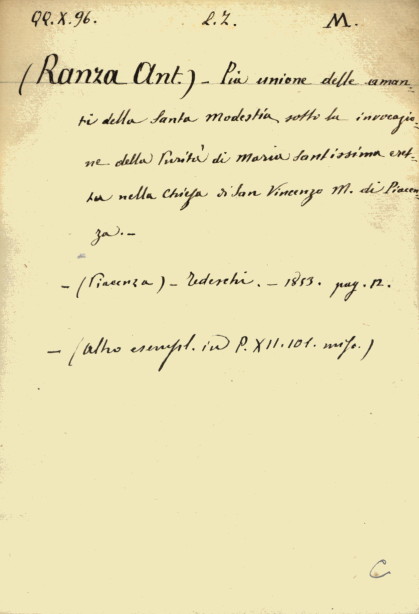 QQ.X.96. L.Z. M.
(Ranza Ant.) – Pia unione delle aman-
ti della Santa Modestia, sotto la invocazio-
ne della Purità di Maria Santissima eret-
ta nella Chiesa di San Vincenzo M. di Piacen-
za. –
– (Piacenza) – Tedeschi. – 1853. pag. 12.
– (Altro esempl. in P. XII. 101. misc.)
C